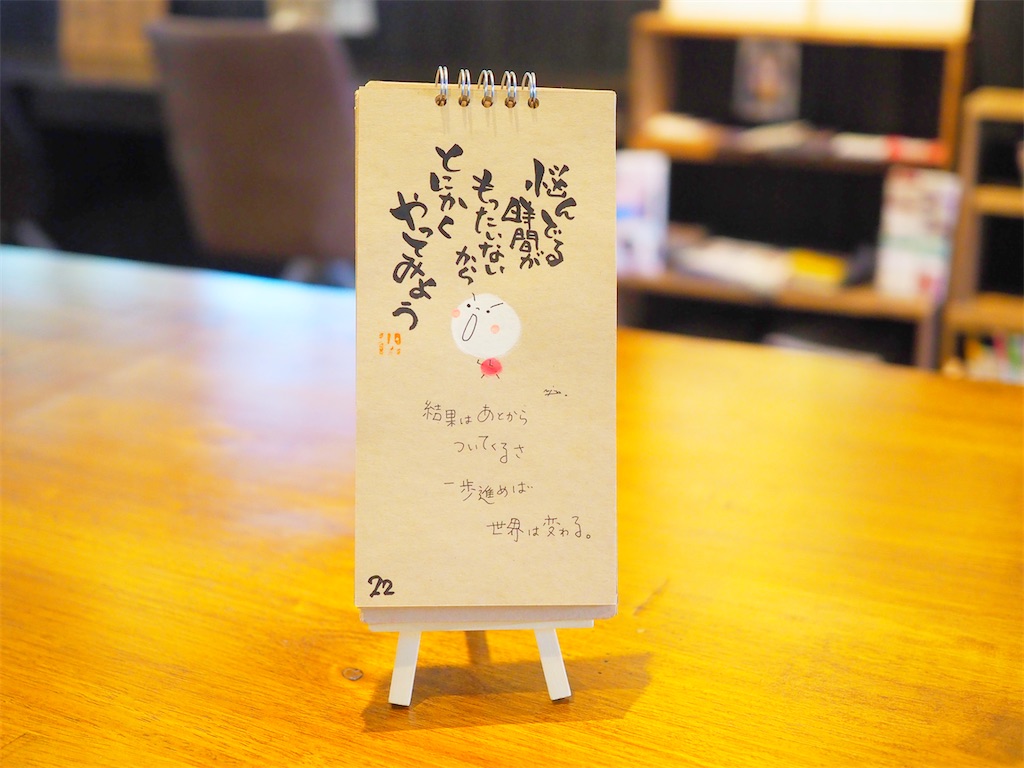 悩んでる
時間が
もったいない
から
とにかく
やってみよう
結果はあとから
ついてくるさ
一歩進めば
世界は変わる。
22